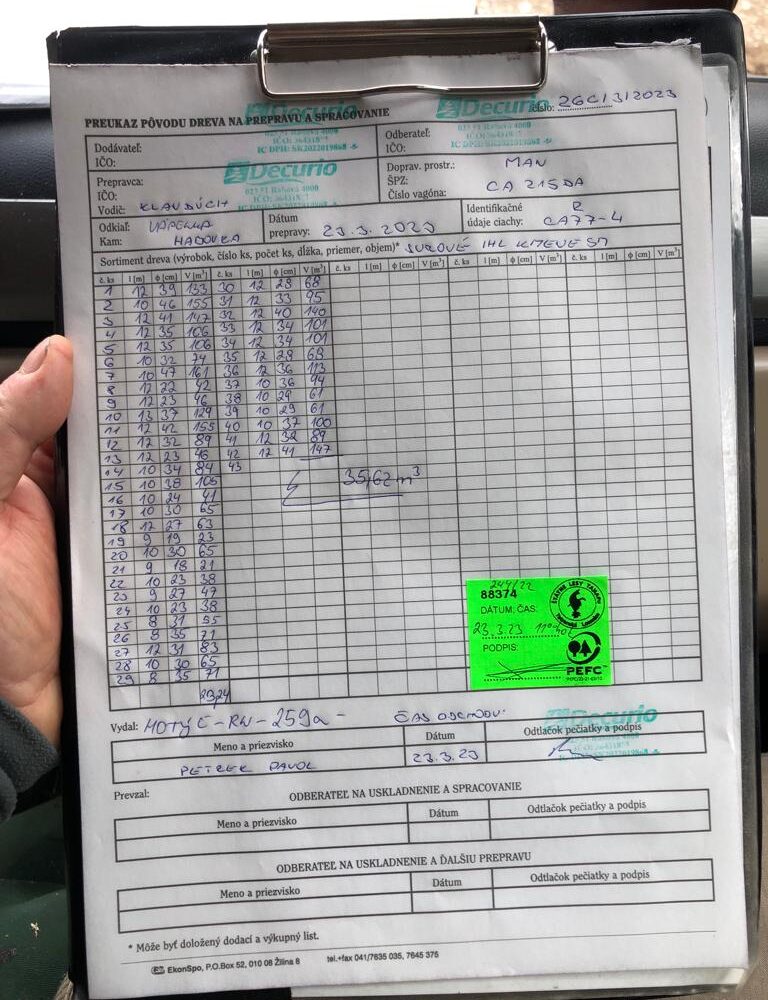 Decurio Decurio
PREUKAZ PÔVODU DREVA NA PREPRAVU A SPRACOVANIE číslo: 26C/3/2023
Dodávateľ:
IČO:
023 51 Raková 4000
IC DPH: SK2022019868
Odberateľ:
IČO:
023 51 Raková 4000
IC DPH: SK2022019868
Prepravca:
IČO:
Vodič: KLAUDÚCH
Decurio
023 51 Raková 4000
Doprav. prostr.: MAN
ŠPZ:
Číslo vagóna: CA 215DA
Odkiaľ: VÁPENKA
Kam: HADOVKA
Dátum
prepravy: 23.3.2023
Identifikačné
údaje ciachy: CA77-4
Sortiment dreva (výrobok, číslo ks, počet ks, dĺžka, priemer, objem)* SUROVÉ IHL KMENE SM
č. ks l [m] φ [cm] V [m³] č. ks l [m] φ [cm] V [m³] č. ks l [m] φ [cm] V [m³] č. ks l [m] φ [cm] V [m³] č. ks l [m] φ [cm] V [m³]
1 12 39 133 30 12 28 68
2 10 46 155 31 12 33 95
3 12 41 147 32 12 40 140
4 12 35 106 33 12 34 101
5 12 35 106 34 12 34 101
6 10 32 74 35 12 28 68
7 10 47 161 36 12 36 113
8 12 22 42 37 10 36 94
9 12 23 46 38 10 29 61
10 13 37 129 39 10 29 61
11 12 42 155 40 10 37 100
12 12 32 89 41 12 32 89
13 12 23 46 42 12 41 147
14 10 34 84 43
15 10 38 105 35,62 m³
16 10 24 41
17 10 30 65
18 12 27 63
19 9 19 23
20 10 30 65
21 9 18 21
22 10 23 38
23 9 27 47
24 10 23 38
25 8 31 55
26 8 35 71
27 12 31 83
28 10 30 65
29 8 35 71
23,24
244/22
88374
DÁTUM, ČAS:
23.3.23
PODPIS:
ŠTÁTNE LESY TANAPU
PEFC
Vydal: ČAS ODCHODU:
Decurio
Meno a priezvisko Dátum Odtlačok pečiatky a podpis
PETREK PAVOL 23.3.23
Prevzal: ODBERATEĽ NA USKLADNENIE A SPRACOVANIE
Meno a priezvisko Dátum Odtlačok pečiatky a podpis
ODBERATEĽ NA USKLADNENIE A ĎALŠIU PREPRAVU
Meno a priezvisko Dátum Odtlačok pečiatky a podpis
* Môže byť doložený dodací a výkupný list.
EkonSpo, P.O.Box 52, 010 08 Žilina 8 tel.+fax 041/7635 035, 7645 375